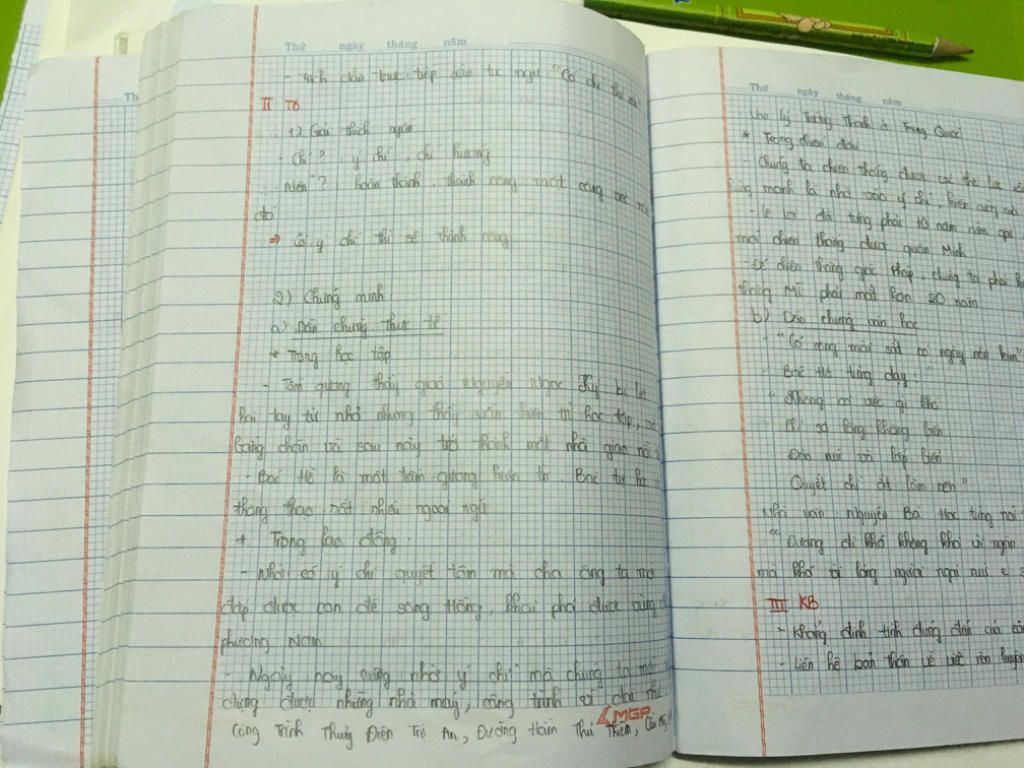 Thứ ngày tháng năm
- Trích dẫn trực tiếp câu tục ngữ "Có chí thì
II TB
1) Giải thích ngắn
- Chí? ý chí, chí hướng
- Nên? hoàn thành, thành công một công việc
đó
⇒ Có ý chí thì sẽ thành công
2) Chứng minh
a) Dẫn chứng thực tế
* Trong học tập
- Tấm gương thầy giáo Nguyễn Ngọc Ký bị liệt
hai tay từ nhỏ nhưng thầy vẫn kiên trì học tập,
bằng chân và sau này trở thành một nhà giáo
- Bác Hồ là một tấm gương kiên trì. Bác tự học
thông thạo rất nhiều ngoại ngữ
+ Trong lao động.
- Nhờ có ý chí quyết tâm mà cha ông ta mới
đắp được con đê sông Hồng, khai phá được vùng
phương Nam
- Ngày nay cũng nhờ ý chí mà chúng ta mới
dựng được những nhà máy, công trình vĩ đại như
Công Trình Thuỷ Điện Trị An, Đường Hầm Thủ Thiêm,
MGP
Th
Thứ ngày tháng năm
Trung Quốc
* Trong chiến đấu
- Chúng ta chiến thắng được các thế lực
mạnh là nhờ vào ý chí, kiên cường
- Lê Lợi đã từng phải 10 năm nằm gai
mới chiến thắng được quân Minh
- Để chiến thắng giặc Pháp, chúng ta phải
thắng Mĩ phải mất hơn 20 năm
b) Dẫn chứng văn học
- "Có công mài sắt có ngày nên kim"
- Bác Hồ từng dạy:
"Không có việc gì khó
Chỉ sợ lòng không bền
Đào núi và lấp biển
Quyết chí ắt làm nên"
Nhà văn Nguyễn Bá Học từng nói
"Đường đi khó không khó vì ngăn
mà khó vì lòng người ngại núi e
III KB
- Khẳng định tính đúng đắn của câu
- Liên hệ bản thân về việc rèn luyện